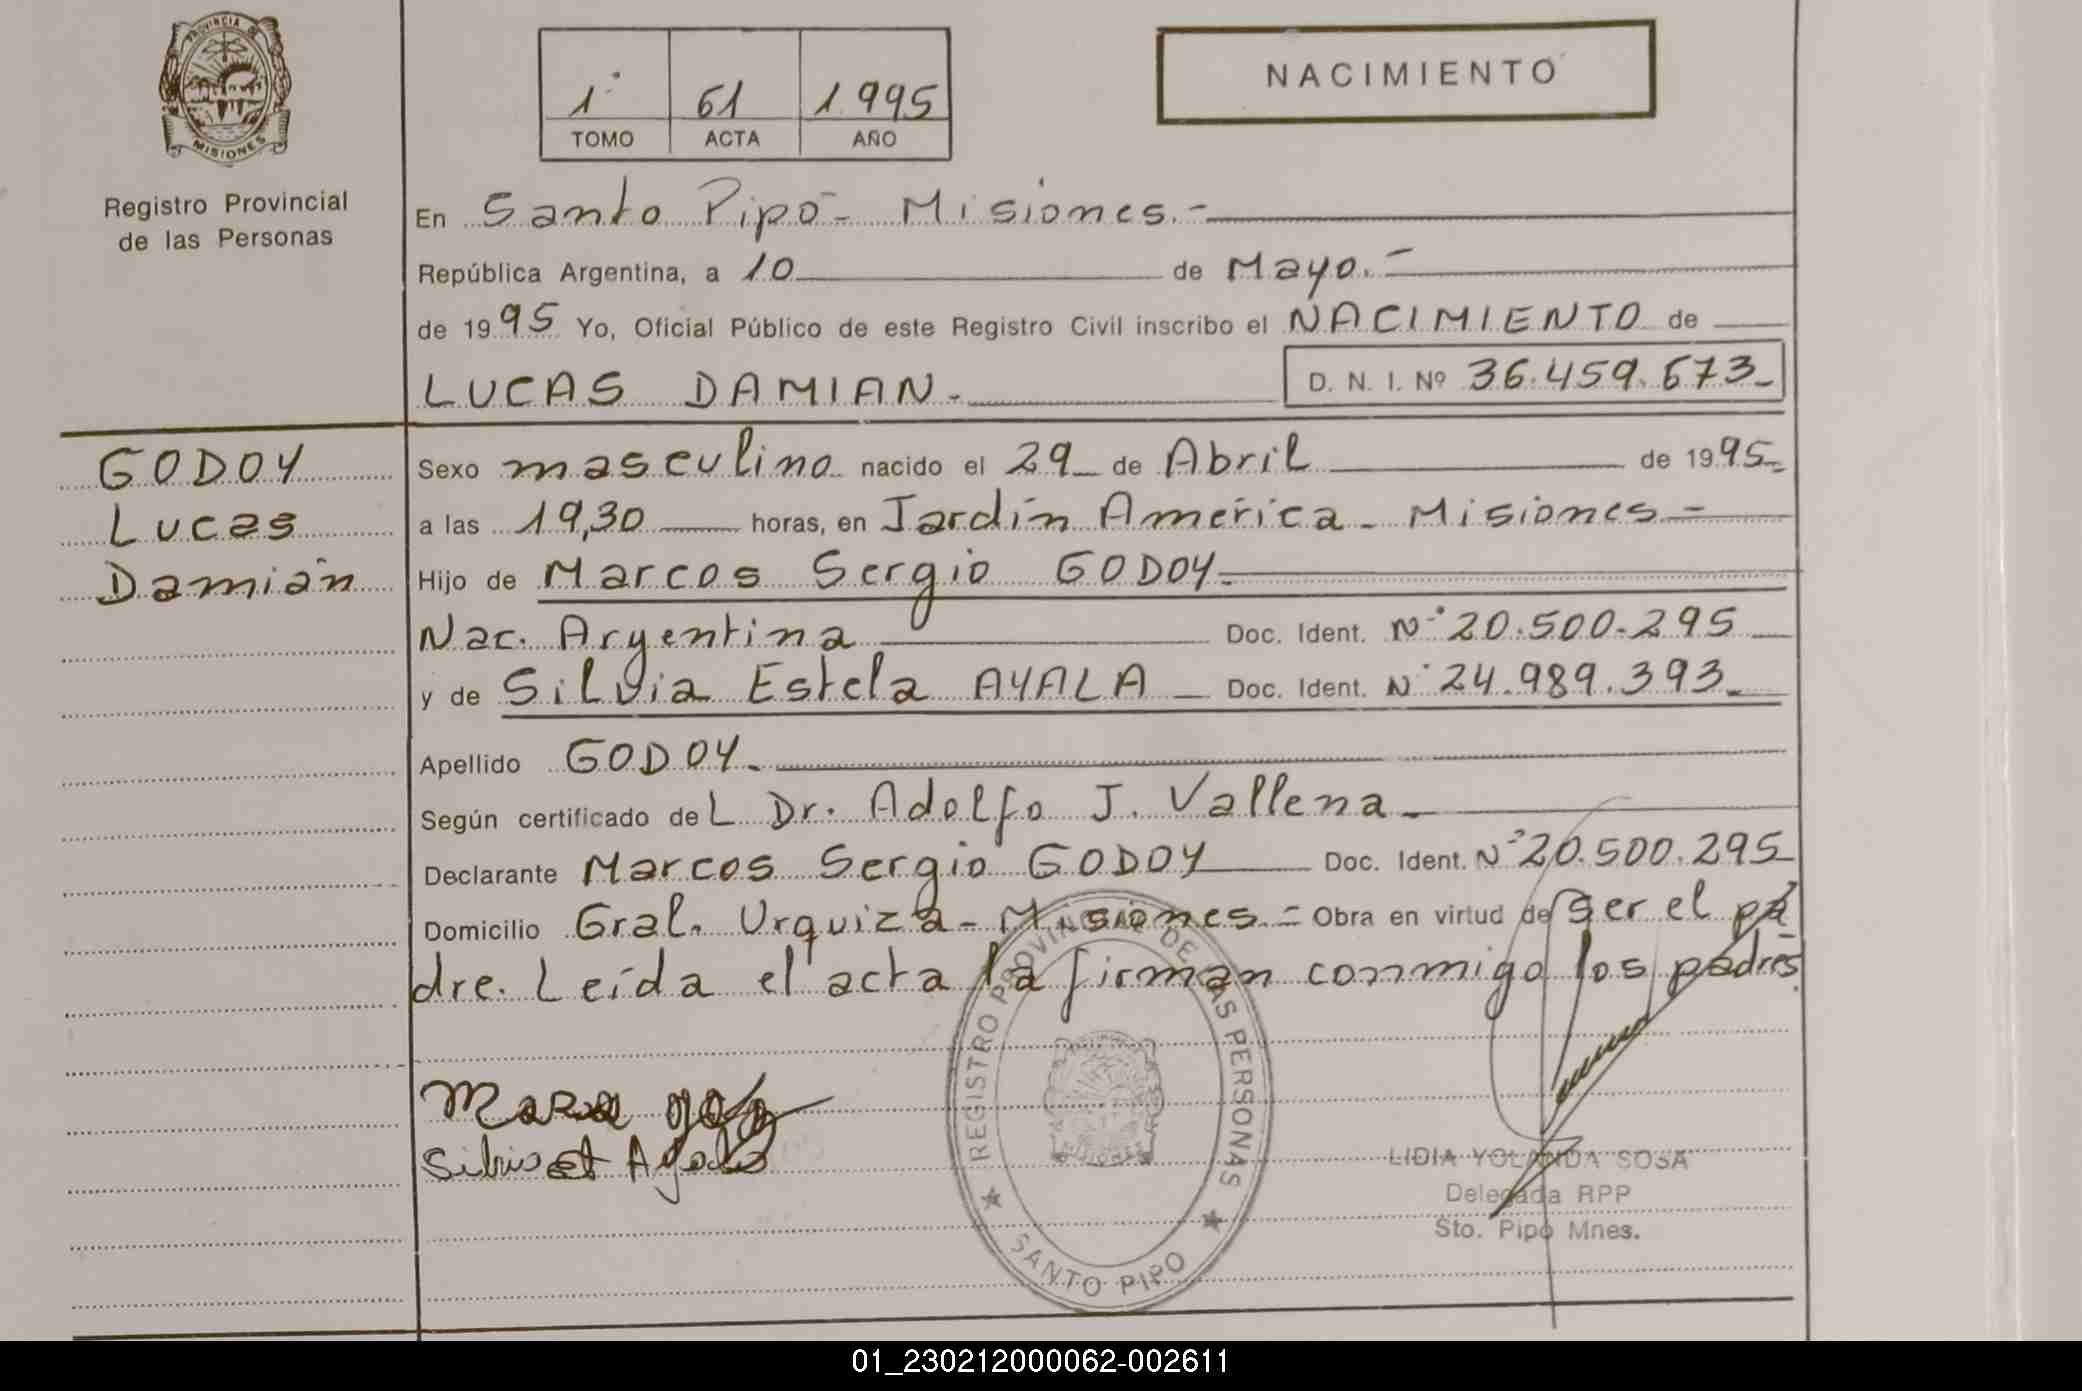 PROVINCIA DE
MISIONES
Registro Provincial
de las Personas
1° 61 1.995
TOMO ACTA AÑO
NACIMIENTO
En Santo Pipó - Misiones.-
República Argentina, a 10 de Mayo.-
de 1995 Yo, Oficial Público de este Registro Civil inscribo el NACIMIENTO de
LUCAS DAMIAN.- D. N. I. Nº 36.459.673-
GODOY
Lucas
Damián
Sexo masculino nacido el 29 de Abril de 1995-
a las 19,30 horas, en Jardín América - Misiones -
Hijo de Marcos Sergio GODOY.-
Nac. Argentina Doc. Ident. N° 20.500.295
y de Silvia Estela AYALA - Doc. Ident. N° 24.989.393-
Apellido GODOY.
Según certificado del Dr. Adolfo J. Vallena -
Declarante Marcos Sergio GODOY Doc. Ident. N° 20.500.295
Domicilio Gral. Urquiza - Misiones - Obra en virtud de ser el pa
dre. Leída el acta la firman conmigo los padres.
REGISTRO PROVINCIAL DE LAS PERSONAS
MISIONES
SANTO PIPO
LIDIA YOLANDA SOSA
Delegada RPP
Sto. Pipó Mnes.
01_230212000062-002611